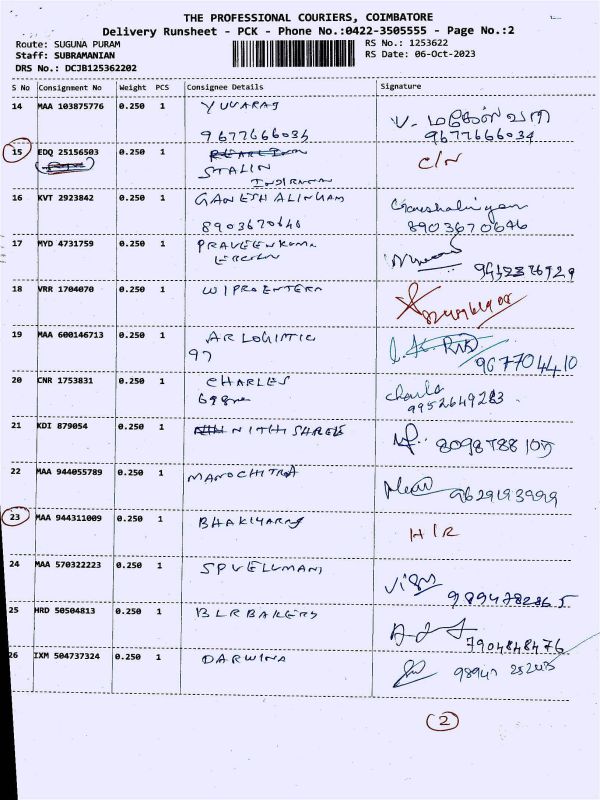 THE PROFESSIONAL COURIERS, COIMBATORE
Delivery Runsheet - PCK - Phone No.:0422-3505555 - Page No.:2
Route: SUGUNA PURAM
RS No.: 1253622
Staff: SUBRAMANIAN
RS Date: 06-Oct-2023
DRS No.: DCJB1253622​02
S No Consignment No Weight PCS Consignee Details Signature
14 MAA 103875776 0.250 1 YUVARAJ
9677666034
15 EDQ 25156503 0.250 1 STALIN C/N
16 KVT 2923842 0.250 1 GANETH ALINGAM
8903670646 8903670646
17 MYD 4731759 0.250 1 PRAVEENKUMA
18 VRR 1704070 0.250 1 WIPRO ENTERN
19 MAA 600146713 0.250 1 AR LOGISTIC
97 9677044410
20 CNR 1753831 0.250 1 CHARLES Charles
9952649283
21 KDI 879054 0.250 1 NITHI SHREE
22 MAA 944055789 0.250 1 MANOCHITRA
9629193999
23 MAA 944311009 0.250 1 H/R
24 MAA 570322223 0.250 1 SPVELUMANI
25 HRD 50504813 0.250 1 BLR BAKERS
7904848476
26 IXM 504737324 0.250 1 DARWINA
2